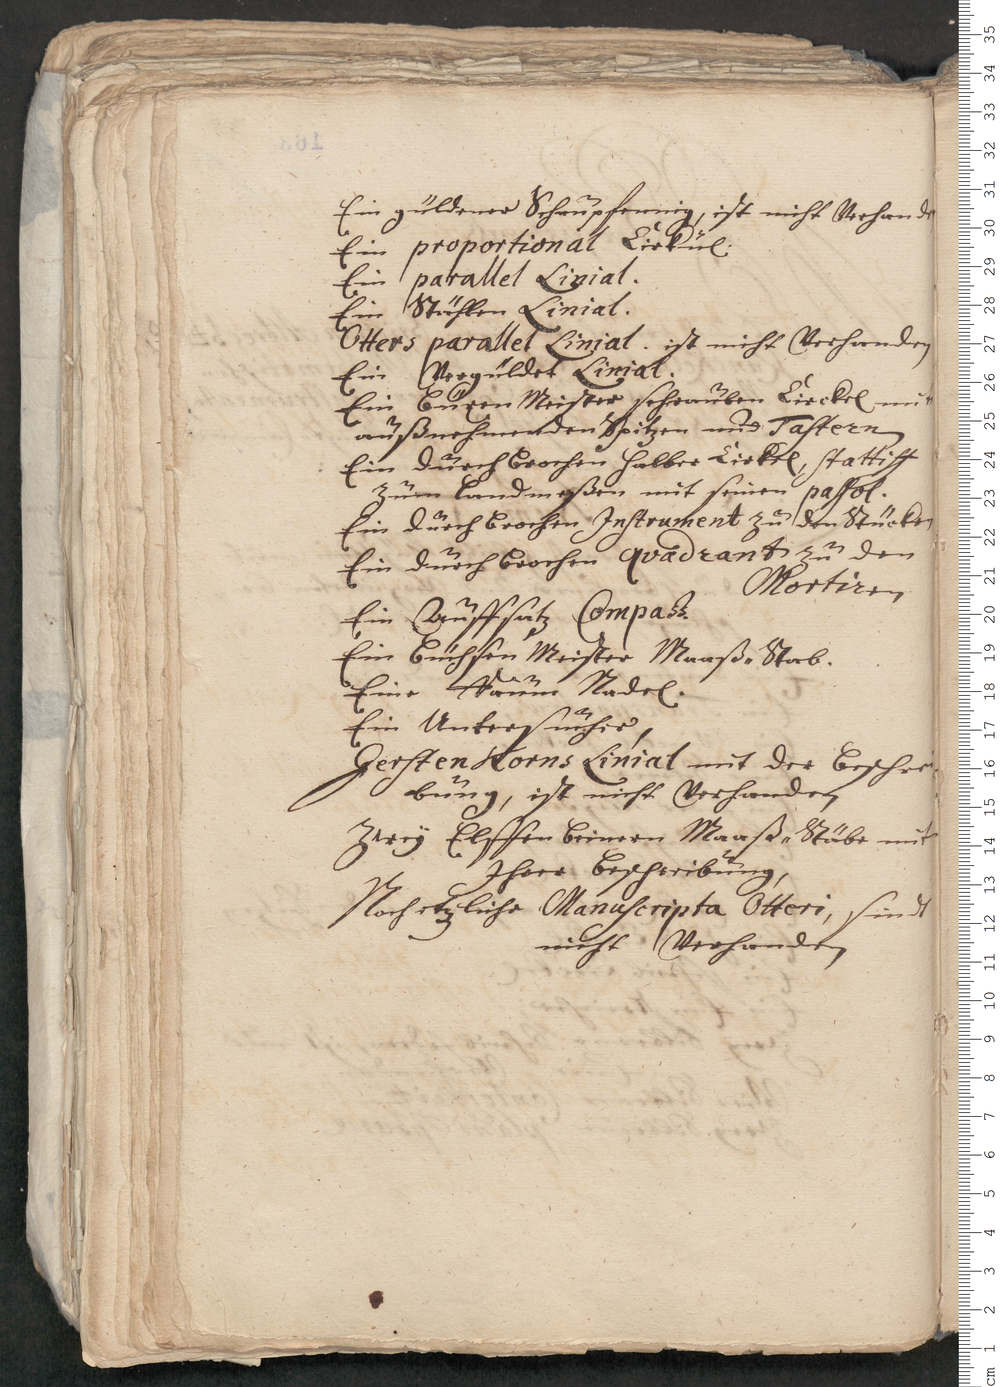 Ein güldener Schaupfennig, ist nicht Verhand
Ein proportional Cirkul.
Ein parallel Linial.
Ein Stählen Linial.
Otters parallel Linial. ist nicht Verhanden
Ein Vergüldet Linial.
Ein Büxen Meister schrauben Circkel mit
außnehmenden Spitzen und Tastern
Ein durchbrochen halber Cirkel, stattich
zum Landmeßen mit seinen
Ein durchbrochen Instrument zu den Stücken
Ein durchbrochen quadrant zu den
Mortiren
Ein Auffsatz Compaß
Ein Büchsen Meister Maaß-Stab.
Eine Raum Nadel.
Ein Untersucher,
GerstenKorns Linial mit der Beschrei
bung, ist nicht Verhanden
Zweÿ Elffenbeinern Maaß-Stäbe mit
Ihrer Beschreibung,
Noch etzliche Manuscripta Otteri, sindt
nicht Verhanden